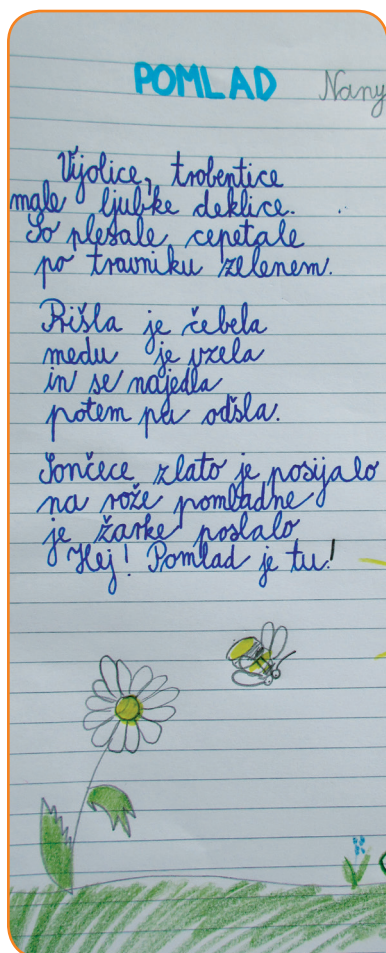 POMLAD Nany
Vijolice, trobentice
male ljubke deklice.
So plesale, cepetale
po travniku zelenem.
Prišla je čebela
medu je vzela
in se najedla
potem pa odšla.
Sončece zlato je posijalo
na rože pomladne
je žarke poslalo
Hej! Pomlad je tu!